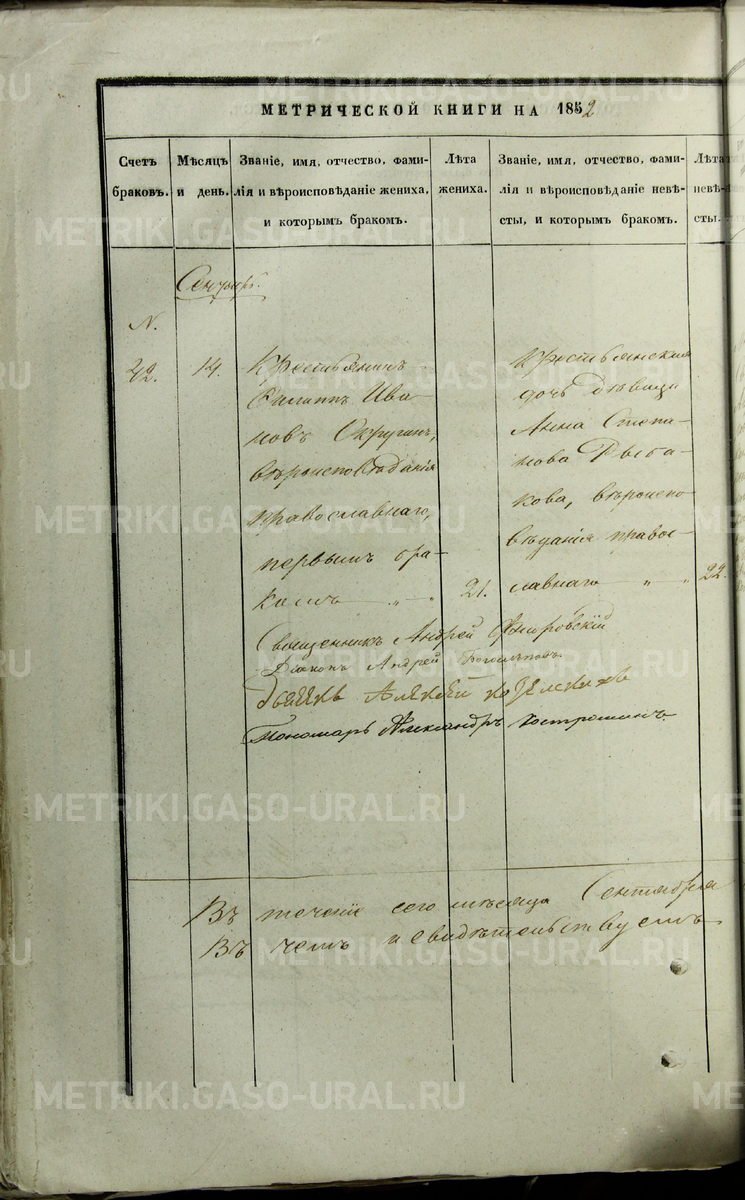 МЕТРИЧЕСКОЙ КНИГИ НА 1852
Счетъ браковъ.
Мѣсяцъ и день.
Званіе, имя, отчество, фамилія и вѣроисповѣданіе жениха, и которымъ бракомъ.
Лѣта жениха.
Званіе, имя, отчество, фамилія и вѣроисповѣданіе невѣсты, и которымъ бракомъ.
Лѣта невѣсты.
N.
42.
14.
Крестьянинъ
Филиппъ Ива-
новъ
вѣроисповѣданія
православнаго,
первымъ бра-
комъ „ „
21.
крестьянская
дочь дѣвица
Анна Степа-
нова Рыба-
кова, вѣроиспо-
вѣданія правос-
лавнаго „ „
22.
Священникъ Андрей
Діаконъ Андрей
Дьячекъ Алексѣй
Пономарь Александръ
Въ теченіе сего мѣсяца Сентября
Въ чемъ и свидѣтельствуемъ
METRIKI.GASO-URAL.RU